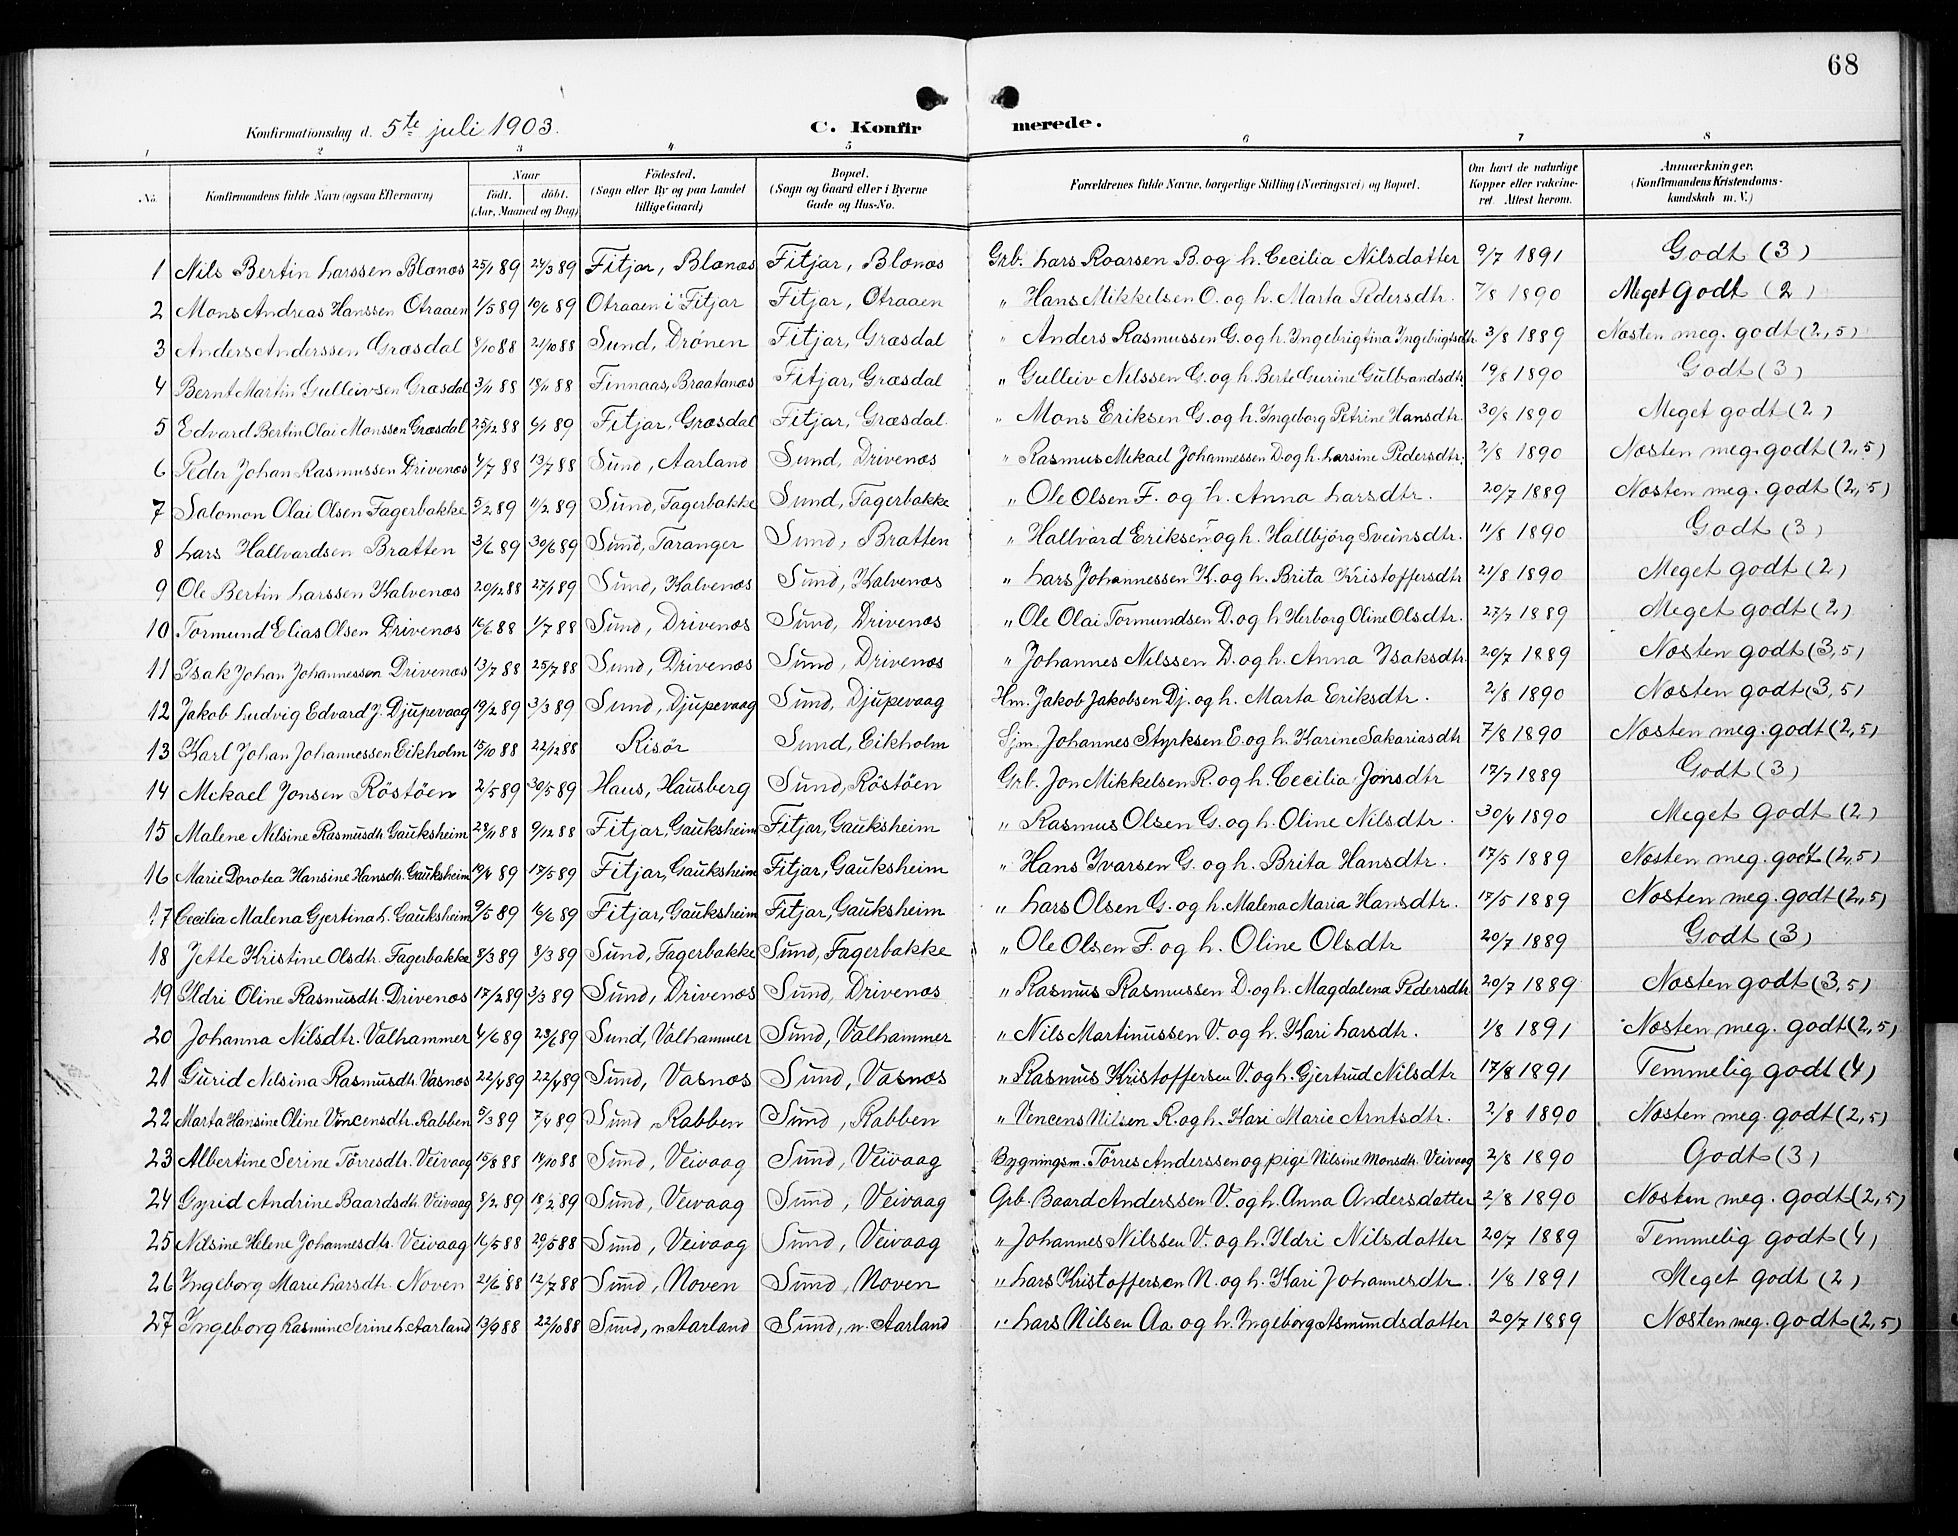 68
Konfirmationsdag d. 5te juli 1903. C. Konfirmerede.
1 2 3 4 5 6 7 8
No. Konfirmandens fulde Navn (ogsaa Efternavn) Naar født. døbt. (Aar, Maaned og Dag) Fødested. (Sogn eller By og paa Landet tillige Gaard) Bopæl. (Sogn og Gaard eller i Byerne Gade og Hus-No. Forældrenes fulde Navne, borgerlige Stilling (Næringsvei) og Bopæl. Om havt de naturlige Kopper eller vakcineret. Attest herom. Anmærkninger. (Konfirmandens Kristendomskundskab m. V.)
1 Nils Bertin Larssen Blænæs 25/1 89 24/3 89 Fitjar, Blænæs Fitjar, Blænæs Grb. Lars Roarsen B. og h. Cecilia Nilsdatter 9/7 1891 Godt (3)
2 Mons Andreas Hanssen Otraaen 1/5 89 10/6 89 Otraaen i Fitjar Fitjar, Otraaen " Hans Mikkelsen O. og h. Marta Pedersdtr. 7/8 1890 Meget godt (2)
3 Anders Anderssen Græsdal 8/10 88 21/10 88 Sund, Drönen Fitjar, Græsdal " Anders Rasmussen G. og h. Ingebrigtina Ingebrigtsdtr 3/8 1889 Næsten meg. godt (2,5)
4 Bernt Martin Gulleivsen Græsdal 3/11 88 18/11 88 Finnaas, Braatanæs Fitjar, Græsdal " Gulleiv Nilssen G. og h. Berte Gurine Gulbrandsdtr. 19/8 1890 Godt (3)
5 Edvard Bertin Olai Monssen Græsdal 25/12 88 6/1 89 Fitjar, Græsdal Fitjar, Græsdal. " Mons Eriksen G. og h. Ingeborg Petrine Hansdtr. 30/8 1890 Meget godt (2)
6 Peder Johan Rasmussen Drivenæs 4/7 88 13/7 88 Sund, Aarland Sund, Drivenæs " Rasmus Mikael Johannessen D. og h. Larsine Pedersdtr. 2/8 1890 Næsten meg. godt (2,5)
7 Salomon Olai Olsen Fagerbakke 5/2 89 11/2 89 Sund, Fagerbakke Sund, Fagerbakke " Ole Olsen F. og h. Anna Larsdtr. 20/7 1889 Næsten meg. godt (2,5)
8 Lars Hallvardsen Bratten 3/6 89 30/6 89 Sund, Taranger Sund, Bratten " Hallvard Eriksen T og h. Hallbjörg Sveinsdtr. 11/8 1890 Godt (3)
9 Ole Bertin Larssen Kalvenæs 20/12 88 27/1 89 Sund, Kalvenæs Sund, Kalvenæs " Lars Johannessen K. og h. Brita Kristoffersdtr 21/8 1890 Meget godt (2)
10 Tormund Elias Olsen Drivenæs 16/6 88 1/7 88 Sund, Drivenæs Sund, Drivenæs " Ole Olai Tormundsen D. og h Herborg Oline Olsdtr. 27/7 1889 Meget godt (2)
11 Isak Johan Johannessen Drivenæs 13/7 88 25/7 88 Sund, Drivenæs Sund, Drivenæs " Johannes Nilssen D. og h. Anna Isaksdtr 20/7 1889 Næsten godt (3,5)
12 Jakob Ludvig Edvard J. Djupevaag 19/2 89 3/3 89 Sund, Djupevaag Sund, Djupevaag Hm. Jakob Jakobsen Dj. og h. Marta Eriksdtr. 2/8 1890 Næsten godt (3,5)
13 Karl Johan Johannessen Eikholm 15/10 88 22/12 88 Risör Sund, Eikholm Sjm. Johannes Styrksen E. og h. Karine Sakariasdtr 7/8 1890 Næsten meg. godt (2,5)
14 Mikael Jonsen Röstöen 2/5 89 30/5 89 Haus, Hausberg Sund, Röstöen Grb. Jon Mikkelsen R. og h. Cecilia Jonsdtr 17/7 1889 Godt (3)
15 Malene Nilsine Rasmusdtr. Gauksheim 23/11 88 9/12 88 Fitjar, Gauksheim Fitjar, Gauksheim " Rasmus Olsen G. og h. Oline Nilsdtr. 30/4 1890 Meget godt (2)
16 Marie Dorotea Hansine Hansdtr. Gauksheim 19/4 89 17/5 89 Fitjar, Gauksheim Fitjar, Gauksheim " Hans Ivarsen G. og h. Brita Hansdtr. 17/5 1889 Næsten meg. godt (2,5)
17 Cecilia Malena Gjertina L. Gauksheim 9/5 89 16/6 89 Fitjar, Gauksheim Fitjar, Gauksheim " Lars Olsen G. og h. Malena Maria Hansdtr. 17/5 1889 Næsten meg. godt (2,5)
18 Jette Kristine Olsdtr. Fagerbakke 8/3 89 8/3 89 Sund, Fagerbakke Sund, Fagerbakke " Ole Olsen F. og h. Oline Olsdtr 20/7 1889 Godt (3)
19 Ildri Oline Rasmusdtr. Drivenæs 17/2 89 3/3 89 Sund, Drivenæs Sund, Drivenæs " Rasmus Rasmussen D. og h. Magdalena Pedersdtr 20/7 1889 Næsten godt (3,5)
20 Johanna Nilsdtr. Valhammer 4/6 89 23/6 89 Sund, Valhammer Sund, Valhammer " Nils Martinussen V. og h. Kari Larsdtr. 1/8 1891 Næsten meg. godt (2,5)
21 Gurid Nilsina Rasmusdtr. Vasnæs 22/4 89 22/4 89 Sund, Vasnæs Sund, Vasnæs " Rasmus Kristoffersen V. og h. Gjertrud Nilsdtr 17/8 1891 Temmelig godt (4)
22 Marta Hansine Oline Vincensdtr. Rabben 5/3 89 7/4 89 Sund, Rabben Sund, Rabben " Vencens Nilsen R. og h. Kari Marie Arntsdtr. 2/8 1890 Næsten meg. godt (2,5)
23 Albertine Serine Törresdtr. Veivaag 15/8 88 14/10 88 Sund, Veivaag Sund, Veivaag Bygningsm. Törres Anderssen og pige Nilsine Monsdtr. Veivaag 2/8 1890 Godt (3)
24 Gyrid Andrine Baardsdtr. Veivaag 8/2 89 18/2 89 Sund, Veivaag Sund, Veivaag Grb. Baard Anderssen V. og h. Anna Andersdatter 2/8 1890 Næsten meg. godt (2,5)
25 Nilsine Helene Johannesdtr. Veivaag 16/5 88 29/5 88 Sund, Veivaag Sund, Veivaag " Johannes Nilssen V. og h. Ildri Nilsdatter 20/7 1889 Temmelig godt (4)
26 Ingeborg Marie Larsdtr. Noven 21/6 88 12/7 88 Sund, Noven Sund, Noven " Lars Kristoffersen N. og h. Kari Johannesdtr. 1/8 1891 Meget godt (2)
27 Ingeborg Rasmine Serine L. Aarland 13/9 88 22/10 88 Sund, n. Aarland Sund, n. Aarland " Lars Nilsen Aa og h. Ingeborg Asmundsdatter 20/7 1889 Næsten meg. godt (2,5)